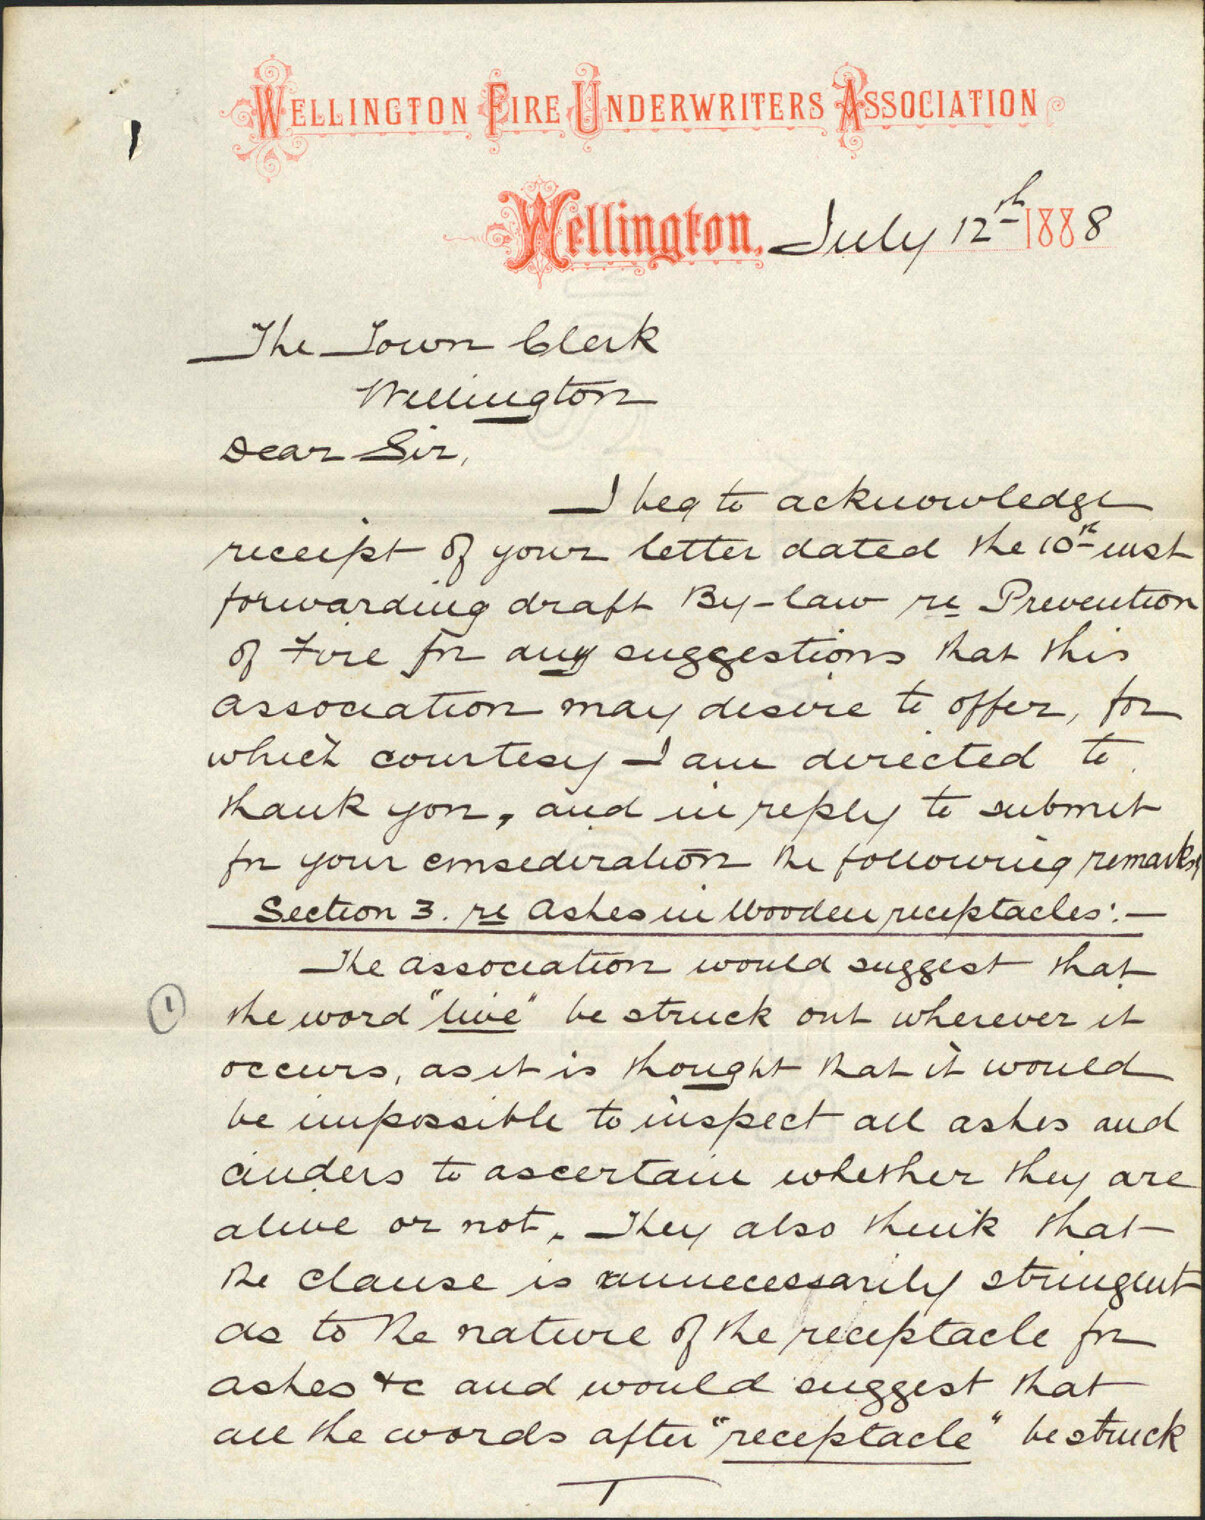 WELLINGTON FIRE UNDERWRITERS ASSOCIATION
Wellington, July 12th 1888
The Town Clerk
Wellington
Dear Sir,
I beg to acknowledge
receipt of your letter dated the 10th inst
forwarding draft By-law re Prevention
of Fire for any suggestions that this
association may desire to offer, for
which courtesy I am directed to
thank you, and in reply to submit
for your consediration the following remarks
Section 3. re Ashes in Wooden receptacles:—
The association would suggest that
1
the word "live" be struck out wherever it
occurs, as it is thought that it would
be impossible to inspect all ashes and
cinders to ascertain whether they are
alive or not. They also think that
the clause is unnecessarily stringent
as to the nature of the receptacle for
ashes &c and would suggest that
all the words after "receptacle" be struck